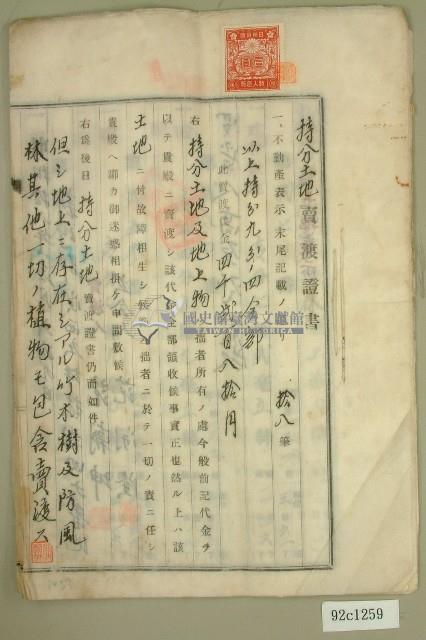 持分土地賣渡證書
一、不動産表示 末尾記載ノ 拾八筆
以上持分九分ノ四全部
此賣渡代金四千貳百八拾円
右持分土地及地上物 拙者所有ノ處今般前記代金ヲ
以テ貴殿ニ賣渡シ該代金全部領收候事實正也然ル上ハ該
土地ニ付故障相生シ候節ハ拙者ニ於テ一切ノ責ニ任シ
貴殿ヘ聊カ御迷惑相掛ケ申間敷候
右爲後日持分土地賣渡證書仍而如件
但シ地上ニ存在シアル竹木樹及防風
林其他一切ノ植物モ包含賣渡ス
國史館臺灣文獻館
TAIWAN HISTORICA
92c1259